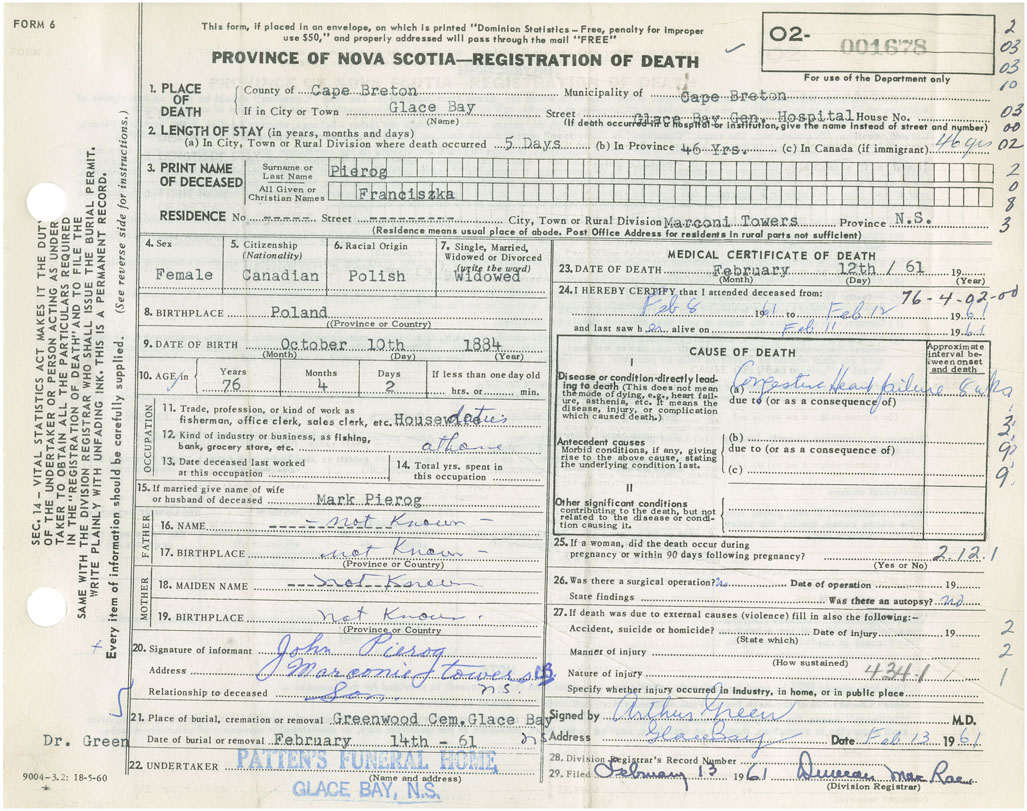 FORM 6
This form, if placed in an envelope, on which is printed "Dominion Statistics – Free, penalty for improper
use $50," and properly addressed will pass through the mail "FREE"
PROVINCE OF NOVA SCOTIA—REGISTRATION OF DEATH
02- 001678
For use of the Department only
2
03
03
10
03
00
02
2
0
8
3
1. PLACE OF DEATH
County of Cape Breton Municipality of Cape Breton
If in City or Town Glace Bay Street Glace Bay Gen. Hospital House No.
(Name) (If death occurred in a hospital or institution, give the name instead of street and number)
2. LENGTH OF STAY (in years, months and days)
(a) In City, Town or Rural Division where death occurred 5 Days (b) In Province 46 Yrs. (c) In Canada (if immigrant) 46 yrs
3. PRINT NAME OF DECEASED
Surname or Last Name Pierog
All Given or Christian Names Franciszka
RESIDENCE No ----- Street --------- City, Town or Rural Division Marconi Towers Province N.S.
(Residence means usual place of abode. Post Office Address for residents in rural parts not sufficient)
4. Sex
Female
5. Citizenship
(Nationality)
Canadian
6. Racial Origin
Polish
7. Single, Married,
Widowed or Divorced
(write the word)
Widowed
8. BIRTHPLACE Poland
((Province or Country)
9. DATE OF BIRTH October 10th 1884
(Month) (Day) (Year)
10. AGE in
Years Months Days If less than one day old
76 4 2 hrs. or min.
OCCUPATION
11. Trade, profession, or kind of work as
fisherman, office clerk, sales clerk, etc. House duties
12. Kind of industry or business, as fishing,
bank, grocery store, etc. at home
13. Date deceased last worked
at this occupation
14. Total yrs. spent in
this occupation
15. If married give name of wife
or husband of deceased Mark Pierog
FATHER
16. NAME - not Known -
17. BIRTHPLACE not Known -
(Province or Country)
MOTHER
18. MAIDEN NAME not Known
19. BIRTHPLACE not Known.
(Province or Country
20. Signature of informant John Pierog
Address Marconie towers CB
n.s.
Relationship to deceased Son
21. Place of burial, cremation or removal Greenwood Cem. Glace Bay
Date of burial or removal February 14th - 61 ns
22. UNDERTAKER PATTEN'S FUNERAL HOME
(Name and address)
GLACE BAY, N.S.
Dr. Green
9004-3.2: 18-5-60
MEDICAL CERTIFICATE OF DEATH
23. DATE OF DEATH February 12th / 61 19
(Month) (Day) (Year)
24. I HEREBY CERTIFY that I attended deceased from: 76-4-02-00
Feb 8 1961 to Feb 12 1961
and last saw her alive on Feb 11 1961
CAUSE OF DEATH
Approximate
interval be-
tween onset
and death
I
Disease or condition directly lead-
ing to death (This does not mean
the mode of dying, e.g., heart fail-
ure, asthenia, etc. It means the
disease, injury, or complication
which caused death.)
(a) Congestive Heart failure 8 wks
due to (or as a consequence of)
Antecedent causes
Morbid conditions, if any, giving
rise to the above cause, stating
the underlying condition last.
(b)
due to (or as a consequence of)
(c)
II
Other significant conditions
contributing to the death, but not
related to the disease or condi-
tion causing it.
25. If a woman, did the death occur during
pregnancy or within 90 days following pregnancy? 2.12.1
(Yes or No)
26. Was there a surgical operation? No Date of operation 19
State findings Was there an autopsy? no
27. If death was due to external causes (violence) fill in also the following:-
Accident, suicide or homicide? Date of injury 19
(State which)
Manner of injury
(How sustained)
Nature of injury 4341
Specify whether injury occurred in Industry, in home, or in public place
Signed by Arthur Green M.D.
Address Glace Bay Date Feb 13 1961
28. Division Registrar's Record Number
29. Filed February 13 1961 Duncan MacRae
(Division Registrar)
2
2
1
SEC. 14 – VITAL STATISTICS ACT MAKES IT THE DUTY
OF THE UNDERTAKER OR PERSON ACTING AS UNDER-
TAKER TO OBTAIN ALL THE PARTICULARS REQUIRED
IN THE "REGISTRATION OF DEATH" AND TO FILE THE
SAME WITH THE DIVISION REGISTRAR WHO SHALL ISSUE THE BURIAL PERMIT.
WRITE PLAINLY WITH UNFADING INK. THIS IS A PERMANENT RECORD.
Every item of information should be carefully supplied. (See reverse side for instructions.)